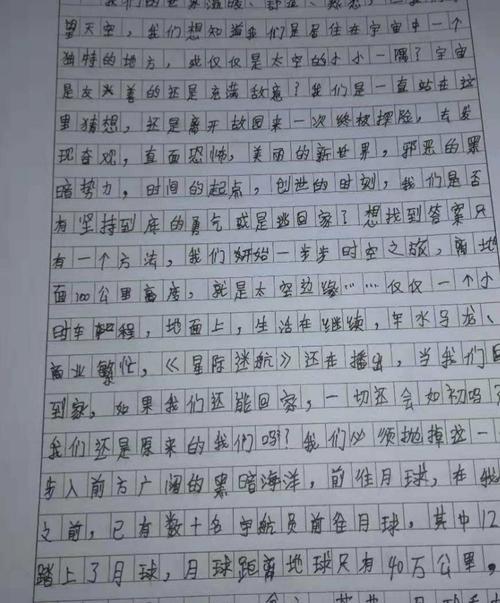 我们的世界温暖、舒适、
望天空,我们想知道我们是居住在宇宙中一个
独特的地方,或仅仅是太空的小小一隅?宇宙
是友善的还是充满敌意?我们是一直站在这
里猜想,还是离开故园来一次终极探险,去发
现奇观,直面恐怖,美丽的新世界,邪恶的黑
暗势力,时间的起点,创世的时刻,我们是否
有坚持到底的勇气或是逃回家?想找到答案只
有一个方法,我们开始一步步时空之旅,离地
面100公里高度,就是太空边缘……仅仅一个小
时车程,地面上,生活在继续,车水马龙、
商业繁忙,《星际迷航》还在播出,当我们回
到家,如果我们还能回家,一切还会如初吗?
我们还是原来的我们吗?我们必须抛掉这一
步入前方广阔的黑暗海洋,前往月球,在我
之前,已有数十名宇航员前往月球,其中12
踏上了月球,月球距离地球只有40万公里,